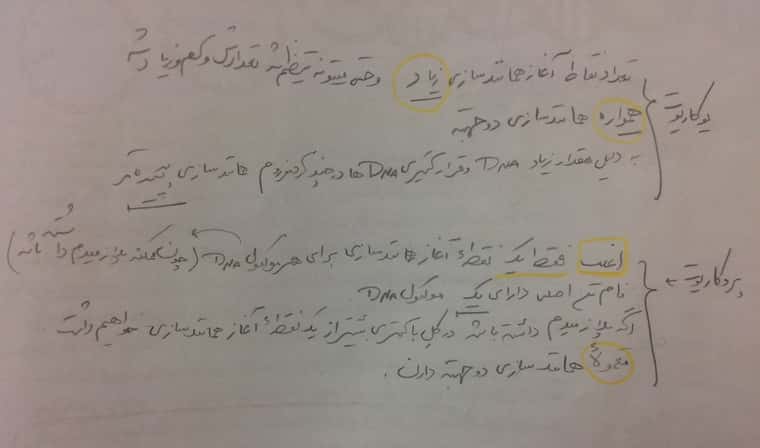 یوکاریوت
تعداد نقاط آغاز همانندسازی زیاد وحتی میتونه تنظیم شه تعدادش و کم و زیاد شه
همواره همانندسازی دوجهته
به دلیل مقدار زیاد DNA و قرارگیری DNA ها در چند کروموزوم همانندسازی پیچیده‌تر
پروکاریوت
اغلب فقط یک نقطهٔ آغاز همانندسازی برای هر مولکول DNA (چون ممکنه پلازمیدم داشته باشه)
فام تن اصلی دارای یک مولکول DNA
اگه پلازمیدم داشته باشه در کل باکتری بیشتر از یک نقطهٔ آغاز همانندسازی خواهیم داشت
معمولاً همانندسازی دوجهته دارن.